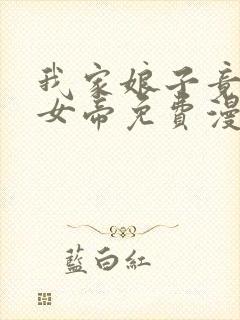 我家娘子竟
女帝免費漫
藍白紅